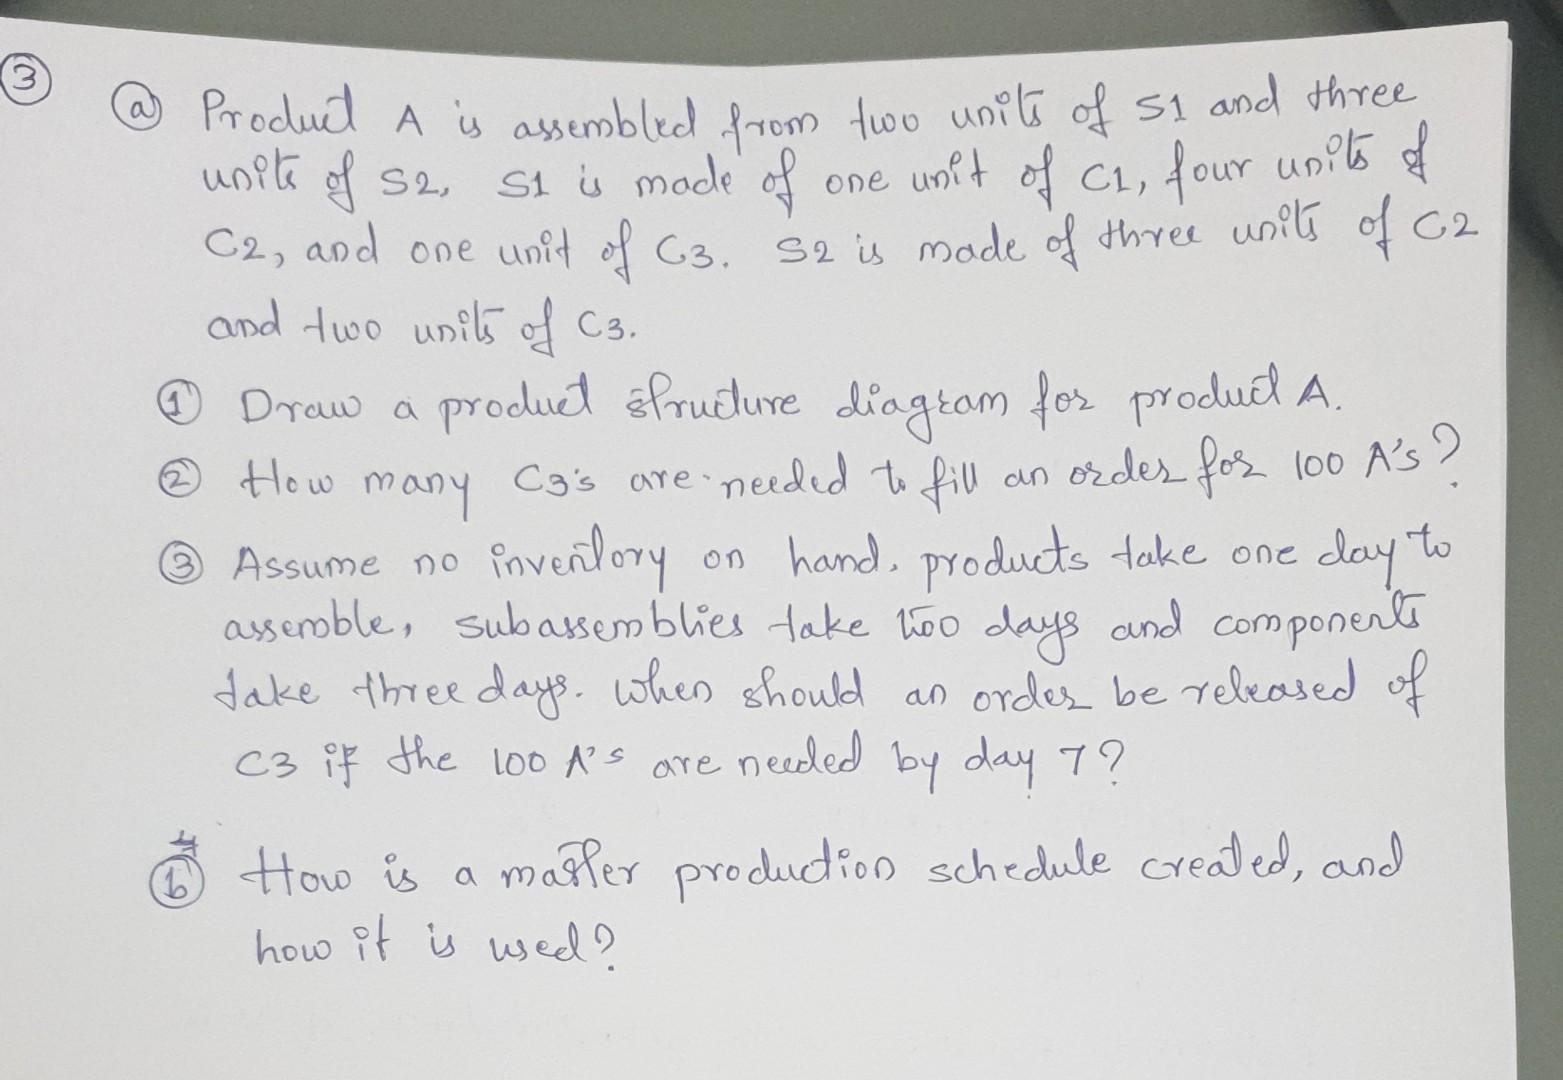 ③
ⓐ Product A is assembled from two units of S1 and three
units of S2, S1 is made of one unit of C1, four units of
C2, and one unit of C3. S2 is made of three units of C2
and two units of C3.
① Draw a product structure diagram for product A.
② How many C3's are needed to fill an order for 100 A's?
③ Assume no inventory on hand. products take one day to
assemble, subassemblies take two days and components
take three days. When should an order be released of
C3 if the 100 A's are needed by day 7?
ⓑ How is a master production schedule created, and
how it is used?